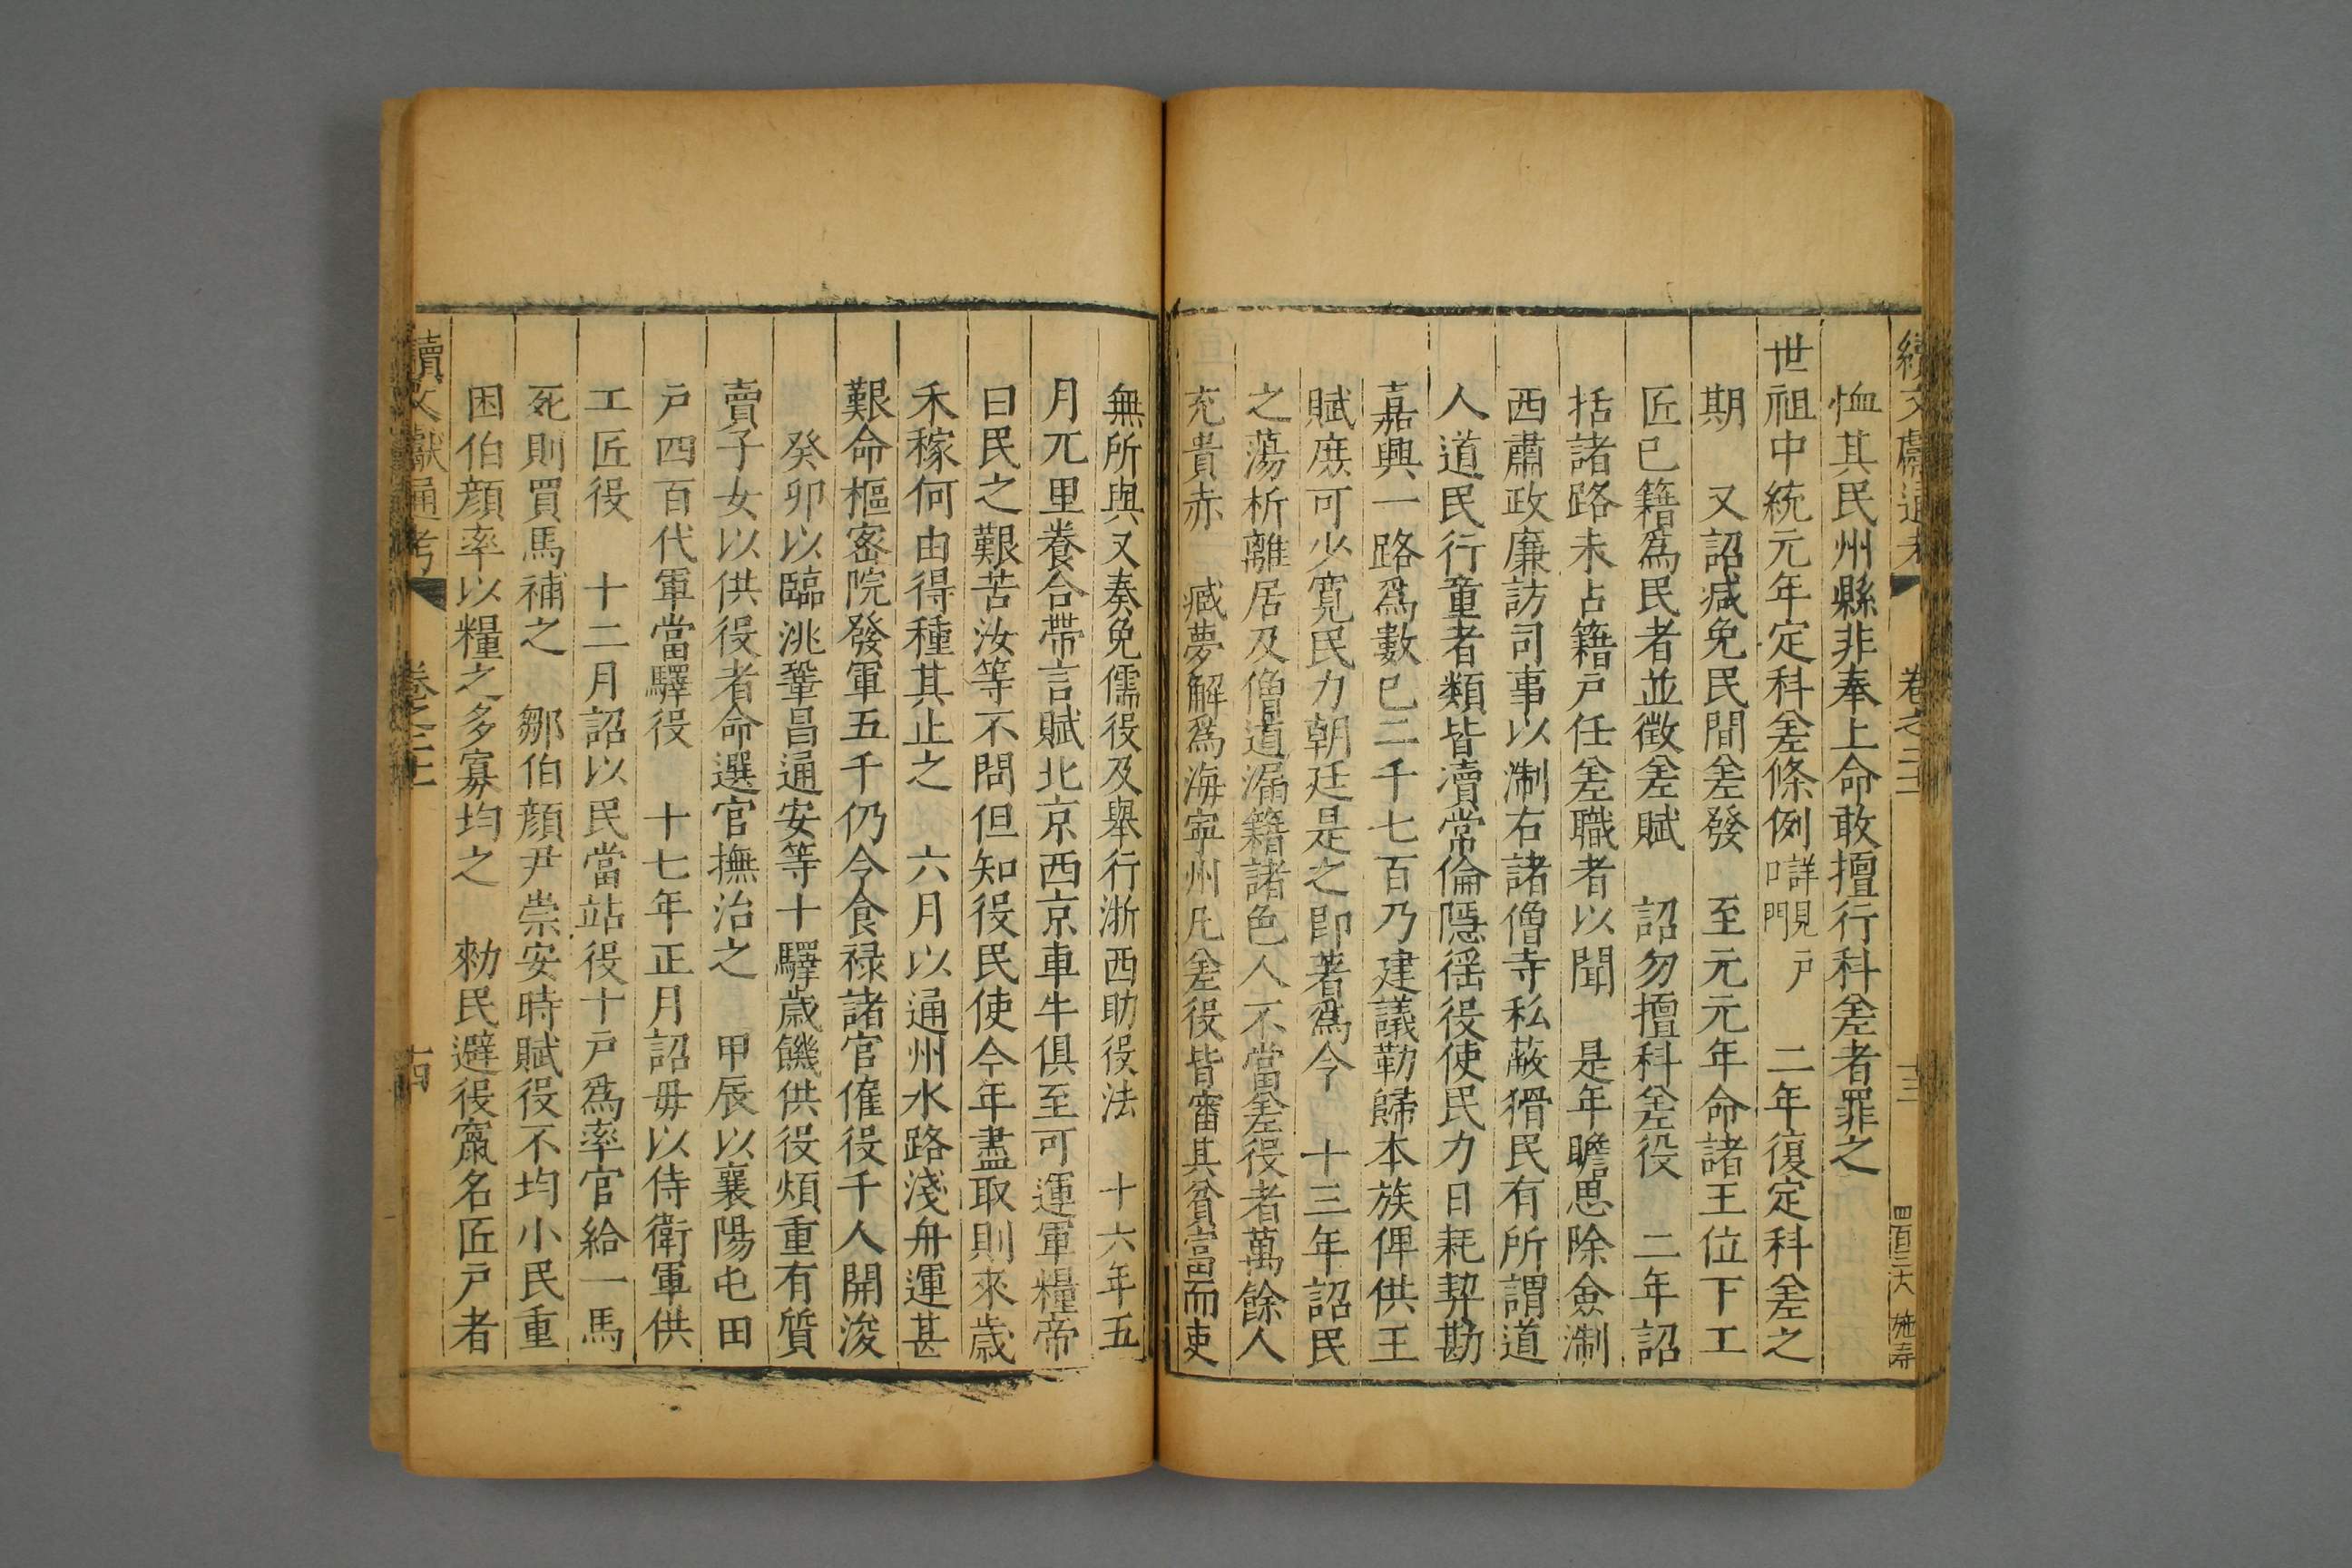 續文獻通考 卷之二十 十三 四百三十六 施寿
恤其民州縣非奉上命敢擅行科差者罪之
世祖中統元年定科差條例詳見戶口門 二年復定科差之
期 又詔减免民間差發 至元元年命諸王位下工
匠已籍爲民者並徵差賦 詔勿擅科差役 二年詔
括諸路未占籍戶任差職者以聞 是年瞻思除僉淛
西肅政廉訪司事以淛右諸僧寺私蔽猾民有所謂道
人道民行童者類皆瀆常倫隱徭役使民力日耗契勘
嘉興一路爲數已二千七百乃建議勒歸本族俾供王
賦庶可少寬民力朝廷是之即著爲令 十三年詔民
之蕩析離居及僧道漏籍諸色人不當差役者萬餘人
充貴赤 臧夢解爲海寧州凡差役皆審其貧富而吏
無所與又奏免儒役及舉行浙西助役法 十六年五
月兀里養合帶言賦北京西京車牛俱至可運軍糧帝
曰民之艱苦汝等不問但知役民使今年盡取則來歲
禾稼何由得種其止之 六月以通州水路淺舟運甚
艱命樞密院發軍五千仍令食祿諸官僱役千人開浚
癸卯以臨洮鞏昌通安等十驛歲饑供役煩重有質
賣子女以供役者命選官撫治之 甲辰以襄陽屯田
戶四百代軍當驛役 十七年正月詔毋以侍衛軍供
工匠役 十二月詔以民當站役十戶爲率官給一馬
死則買馬補之 鄒伯顔尹崇安時賦役不均小民重
困伯顔率以糧之多寡均之 勑民避役竄名匠戶者
續文獻通考 卷之二十 十四